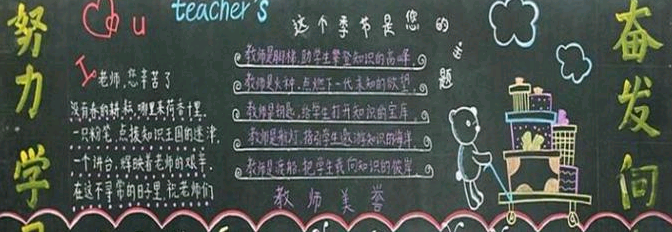 努力学习
teacher's
老师,您辛苦了
没有春的耕耘,哪里来荷香十里,
一只粉笔,点拨知识王国的迷津,
一个讲台,辉映着老师的艰辛,
在这不寻常的日子里,祝老师们
这个季节是您的主题
教师是脚梯,助学生攀登知识的高峰
教师是火种,点燃下一代求知的欲望
教师是钥匙,给学生打开知识的宝库
教师是航灯,指引学生遨游知识的海洋
教师是渡船,把学生载向知识的彼岸
教师美誉
奋发向